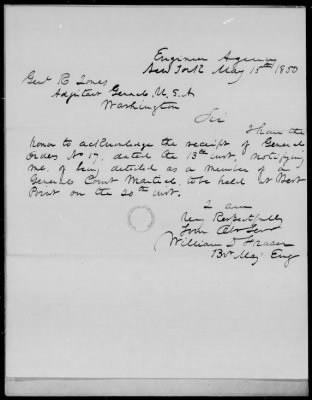 Engineer Agency
New York May 15th 1850
Genl R Jones
Adjutant Genl. U.S.A
Washington
Sir
I have the
honor to acknowledge the receipt of General
Orders No 17, dated the 13th inst, notifying
me of being detailed as a member of a
General Court Martial, to be held at West
Point on the 20th inst.
I am
Very Respectfully
Your Obt Servt
William D Fraser
Bvt Maj Eng